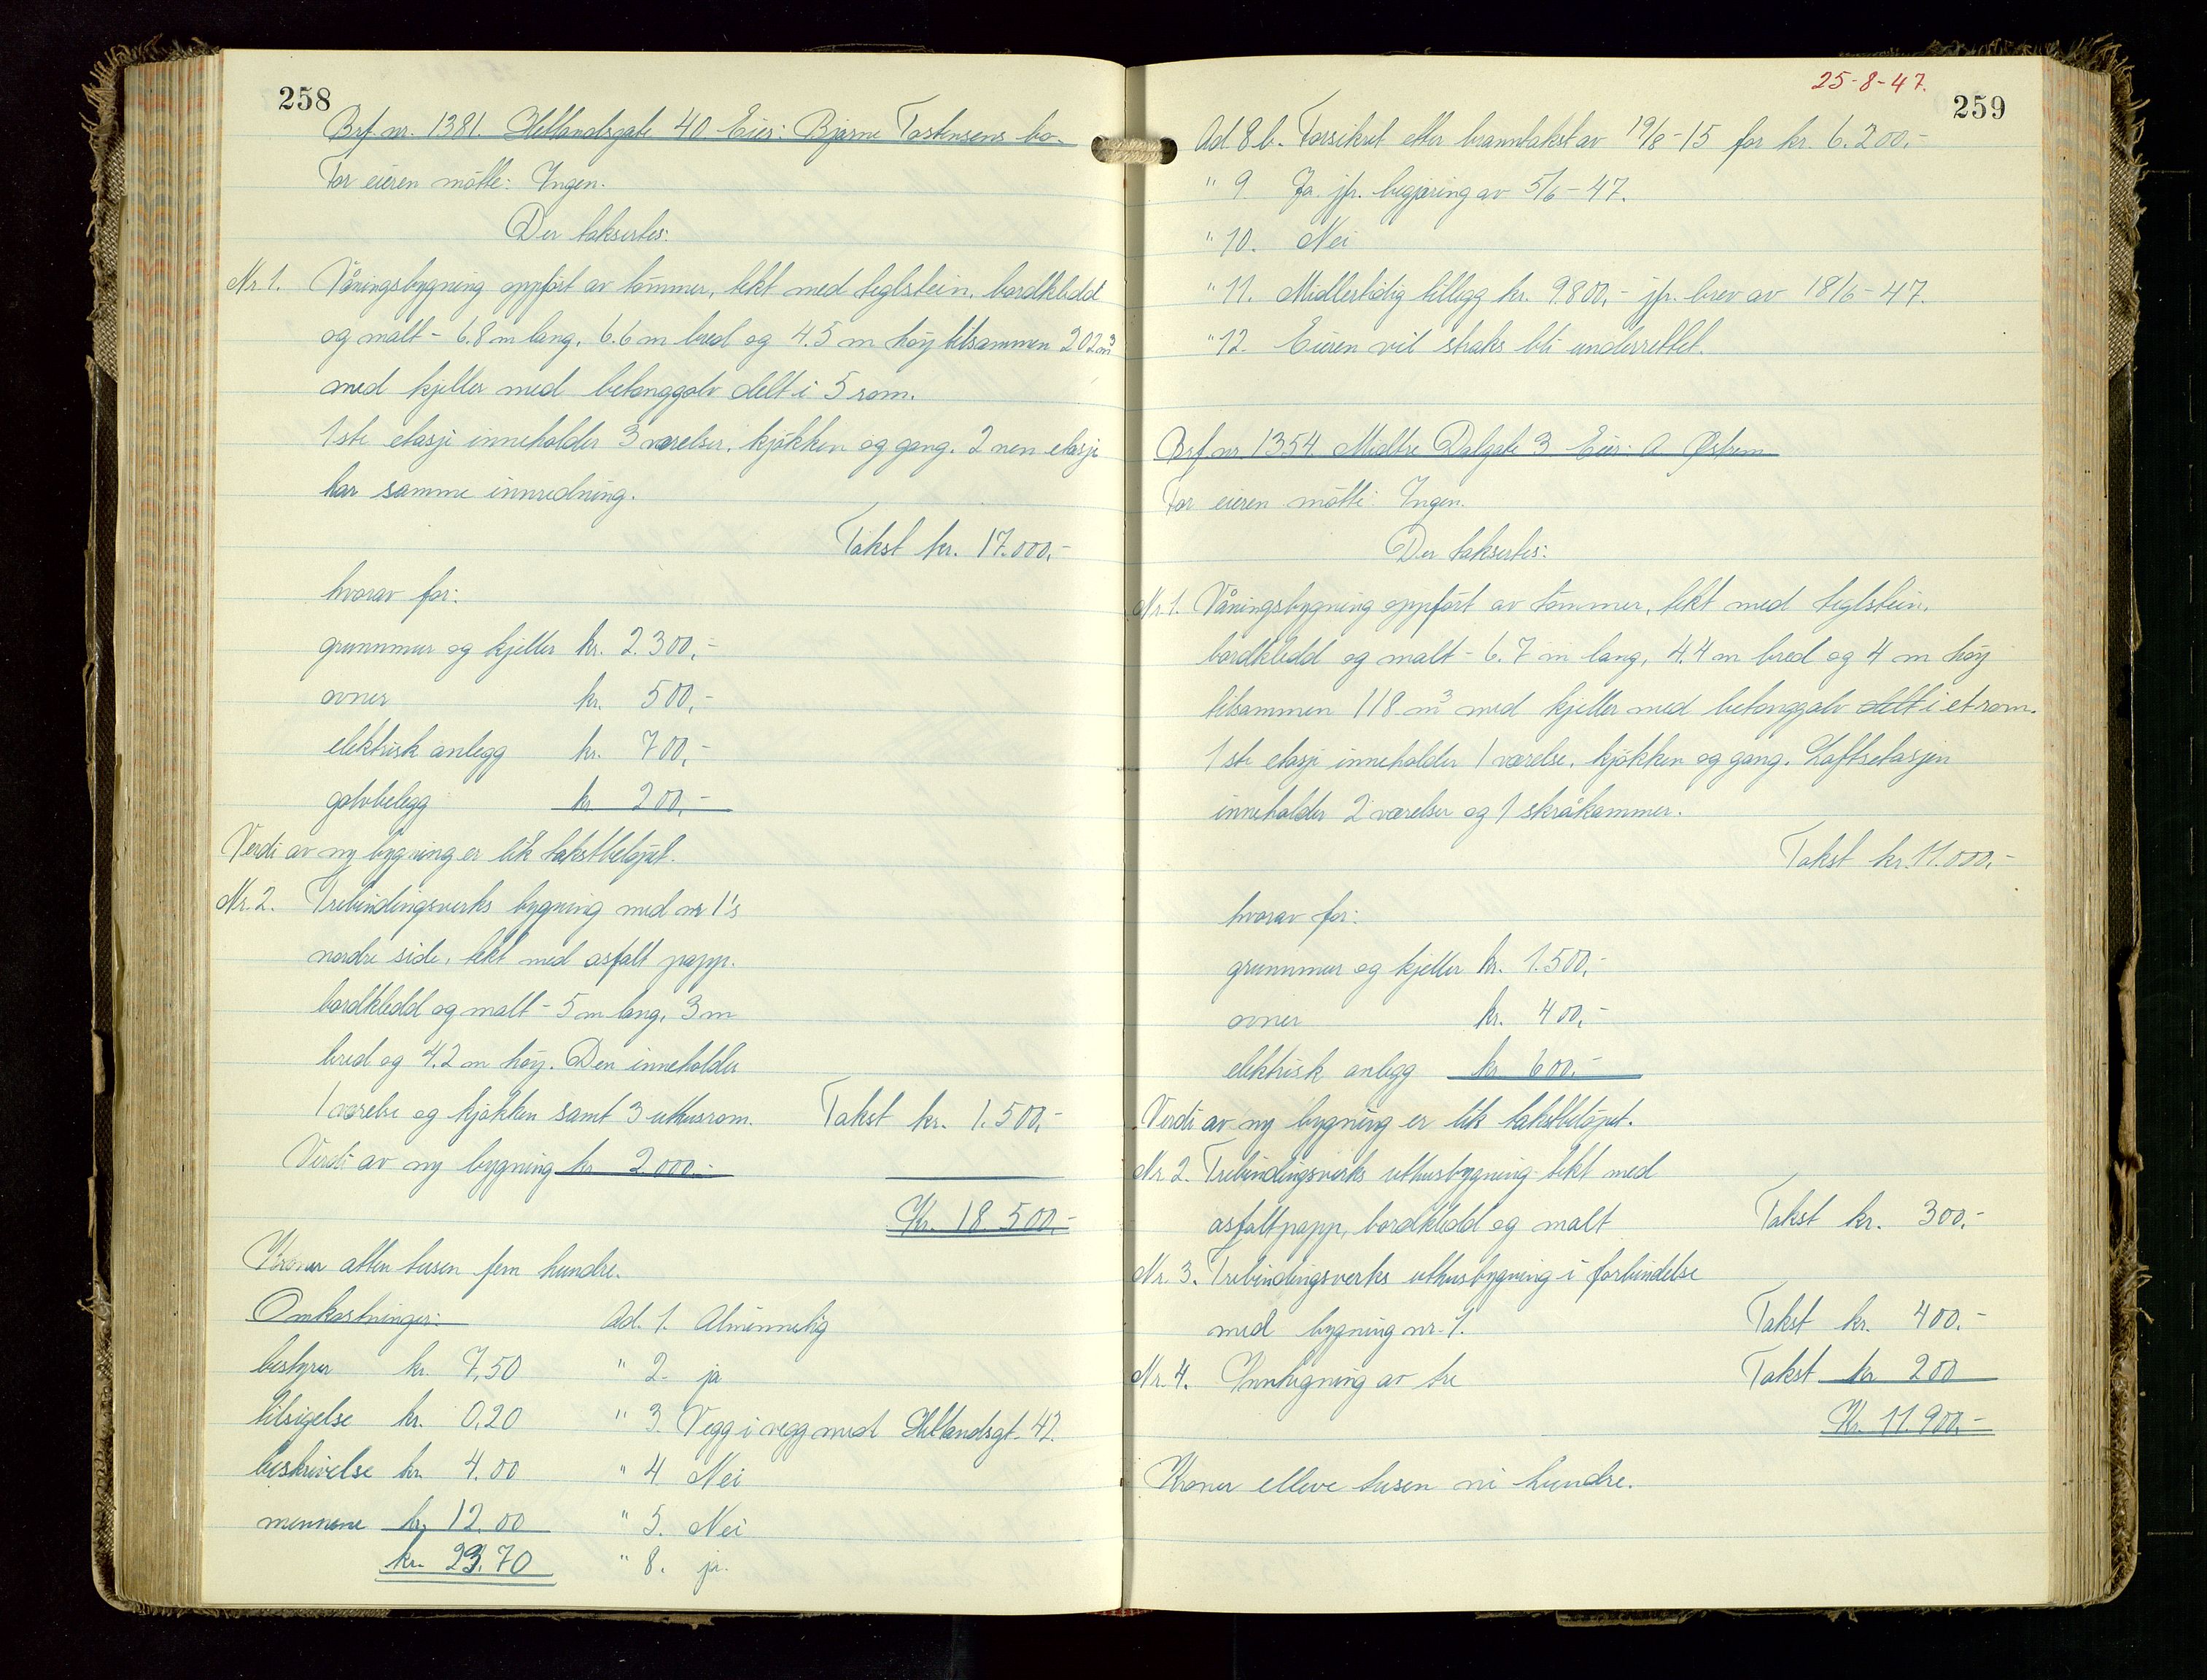 258
Brf. nr. 1381. Hetlandsgate 40 Eier: Bjarne Tostensens bo.
For eieren møtte: Ingen.
Der taksertes:
Nr. 1. Våningsbygning oppført av tømmer, tekt med teglstein, bordkledd
og malt - 6.8 m lang, 6.6 m bred og 4.5 m høy tilsammen 202 m³
med kjeller med betonggolv delt i 5 rom.
1ste etasje inneholder 3 værelser, kjøkken og gang. 2nen etasje
har samme innredning.
Takst kr. 17.000,-
hvorav for:
grunnmur og kjeller kr. 2.300,-
ovner kr. 500,-
elektrisk anlegg kr. 700,-
golvbelegg kr. 200,-
Verdi av ny bygning er lik takstbeløpet.
Nr. 2. Trebindingsverks bygning med nr 1's
nordre side, tekt med asfalt papp.
bordkledd og malt - 5 m lang, 3 m
bred og 4.2 m høy. Den inneholder
1 værelse og kjøkken samt 3 uthusrom. Takst kr. 1.500,-
Verdi av ny bygning kr 2.000.-
Kr. 18.500,-
Kroner atten tusen fem hundre.
Omkostninger: Ad. 1. Alminnelig
bestyrer kr. 7,50 " 2. ja
tilsigelse kr. 0,20 " 3. Vegg i vegg med Hetlandsgt. 42.
beskrivelse kr. 4.00 " 4 Nei
mennene kr. 12.00 " 5. Nei
kr. 23.70 " 8. ja.
25-8-47.
259
Ad 8 b. Forsikret etter branntakst av 19/8-15 for kr. 6.200,-
" 9. Ja. jfr. begjæring av 5/6-47.
" 10. Nei
" 11. Midlertidig tillegg kr. 9.800,- jfr. brev av 18/6-47.
" 12. Eieren vil straks bli underrettet.
Brf. nr. 1354 Midtre Dalgate 3 Eier: A. Østrem
For eieren møtte: Ingen.
Der taksertes:
Nr. 1. Våningsbygning oppført av tømmer, tekt med teglstein,
bordkledd og malt - 6.7 m lang, 4.4 m bred og 4 m høy
tilsammen 118 m³ med kjeller med betonggolv delt i et rom.
1ste etasje inneholder 1 værelse, kjøkken og gang. Loftsetasjen
inneholder 2 værelser og 1 skråkammer.
Takst kr. 11.000,-
hvorav for:
grunnmur og kjeller kr. 1.500,-
ovner kr. 400,-
elektrisk anlegg kr 600.-
Verdi av ny bygning er lik takstbeløpet.
Nr. 2. Trebindingsverks uthusbygning tekt med
asfaltpapp, bordkledd og malt Takst kr. 300,-
Nr. 3. Trebindingsverks uthusbygning i forbindelse
med bygning nr. 1. Takst kr. 400.-
Nr. 4. Innhegning av tre Takst kr 200
Kr. 11.900,-
Kroner elleve tusen ni hundre.